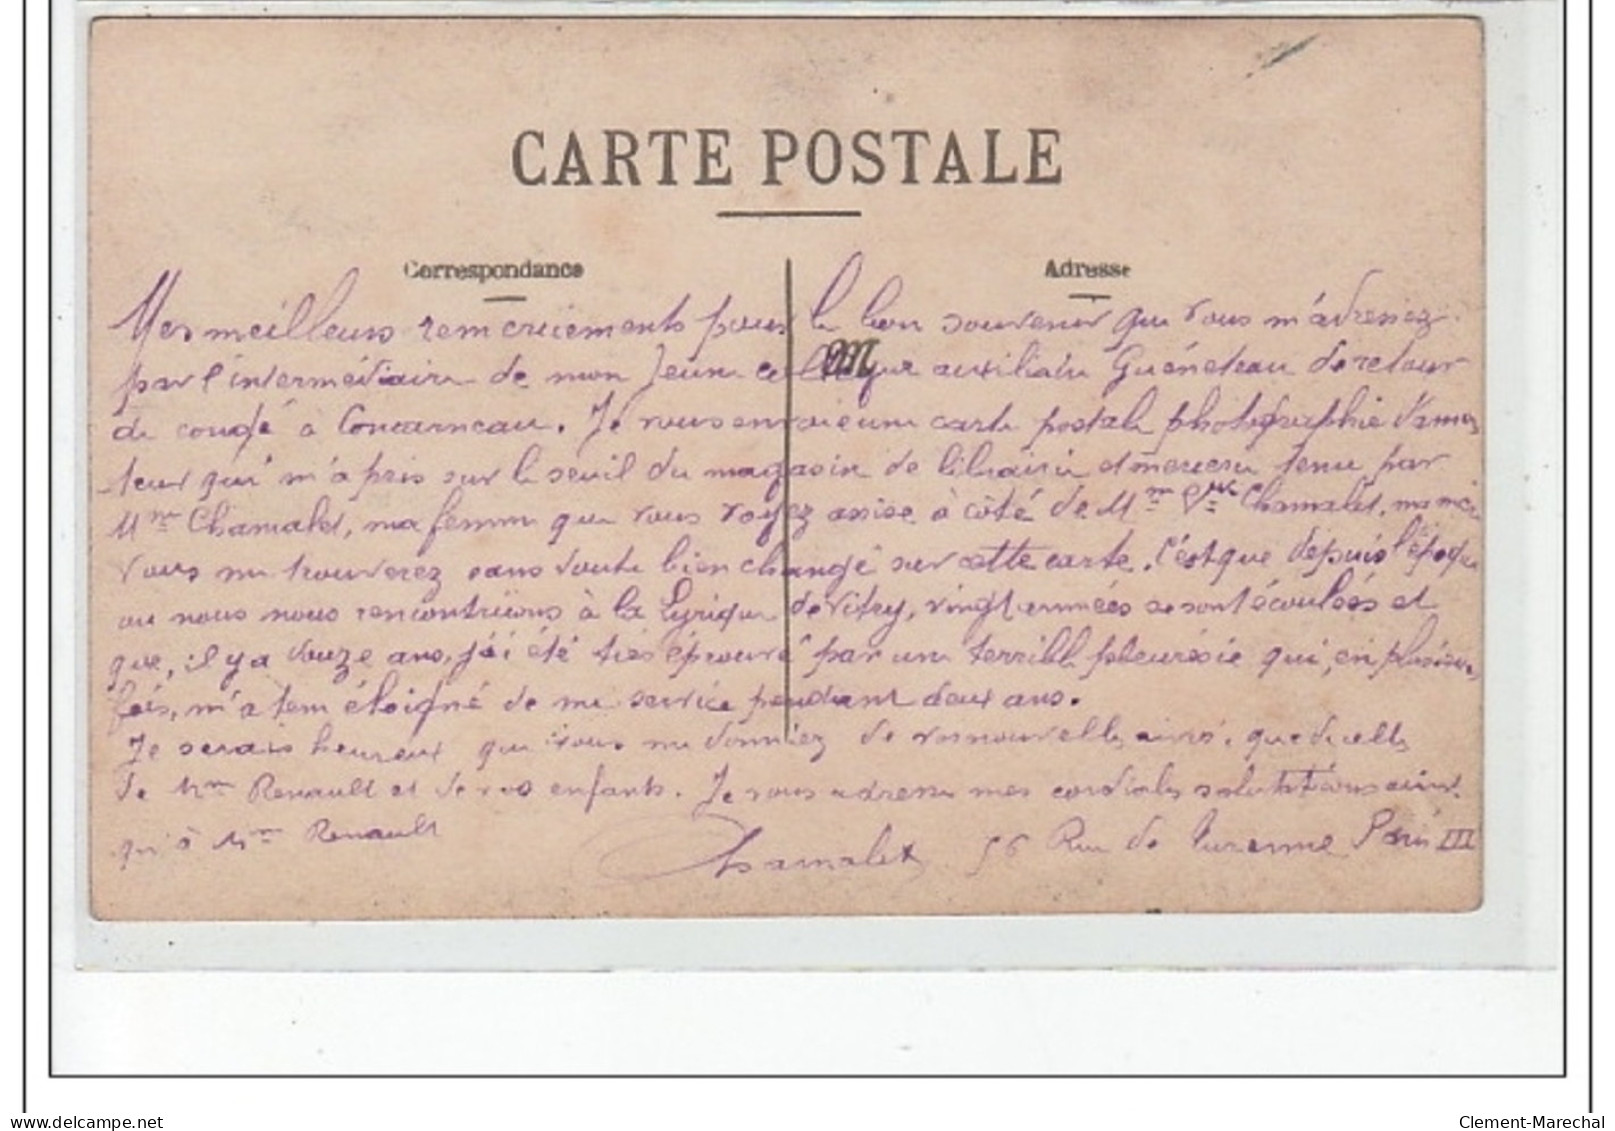 CARTE POSTALE
Correspondance
Adresse
Mes meilleurs remerciements pour le bon souvenir que vous m'adressiez
par l'intermédiaire de mon jeune collègue auxiliaire Guéneteau de retour
de congé à Concarneau. Je vous envoie une carte postale photographie d'ama
teur qui m'a pris sur le seuil du magasin de librairie et mercerie tenu par
Mme Chamalet, ma femme que vous voyez assise à côté de Mme Vve Chamalet, ma mère
Vous me trouverez sans doute bien changé sur cette carte. C'est que depuis l'époque
où nous nous rencontrions à la Lyrique de Vitry, vingt années se sont écoulées et
que, il y a douze ans, j'ai été très éprouvé par un terrible pleurésie qui, en plusieurs
fois, m'a tem éloigné de me service pendant deux ans.
Je serais heureux que vous me donniez de vos nouvelles ainsi que de celles
de Mme Renault et de vos enfants. Je vous adresse mes cordiales salutations ainsi
qu'à Mme Renault
Chamalet 56 Rue de Turenne Paris III
delcampe.net
Clement-Marechal